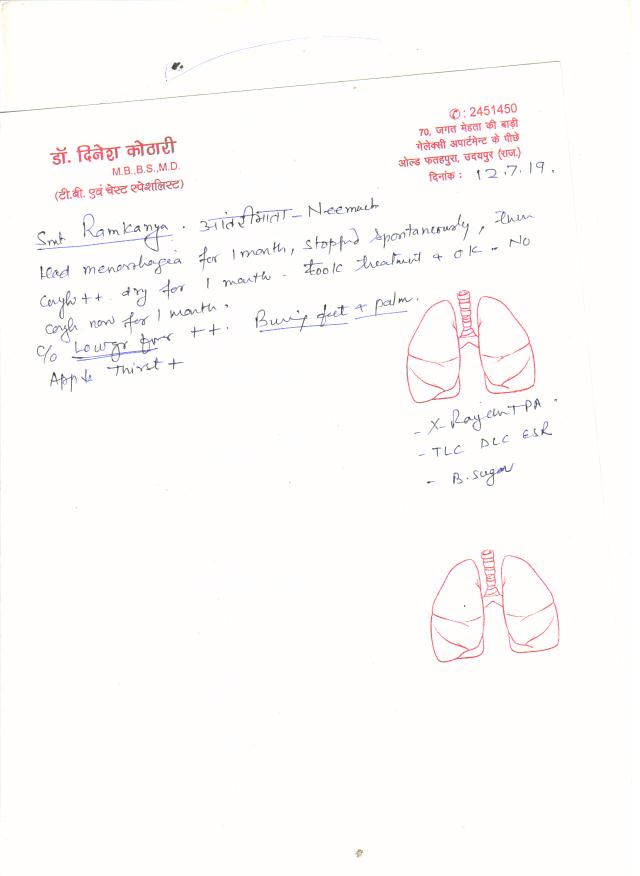 डॉ. दिनेश कोठारी
M.B.,B.S.,M.D.
(टी.बी. एवं चेस्ट स्पेशलिस्ट)
✆: 2451450
70, जगत मेहता की बाड़ी
गेलेक्सी अपार्टमेन्ट के पीछे
ओल्ड फतहपुरा, उदयपुर (राज.)
दिनांक : 12.7.19.
Smt Ramkanya. आंतरीमाता - Neemuch
Had menorrhagea for 1 month, stopped spontaneously, then
cough ++ dry for 1 month - took treatment & OK - No
cough now for 1 month.
C/o Low gr fever ++. Burnig feet & palm.
App ↓ Thirst +
- X-Ray chest PA.
- TLC DLC ESR
- B. Sugar